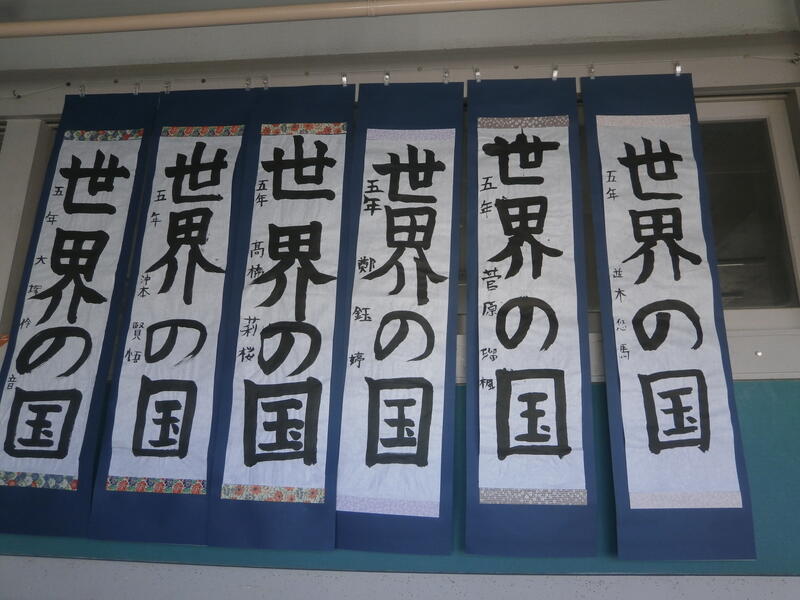 世界の国
五年 菅原 瑠楓
世界の国
五年 並木 悠馬
世界の国
五年 鄭 鈺婷
世界の国
五年 髙橋 莉桜
世界の国
五年 沖本 賢悟
世界の国
五年 大塚 怜音